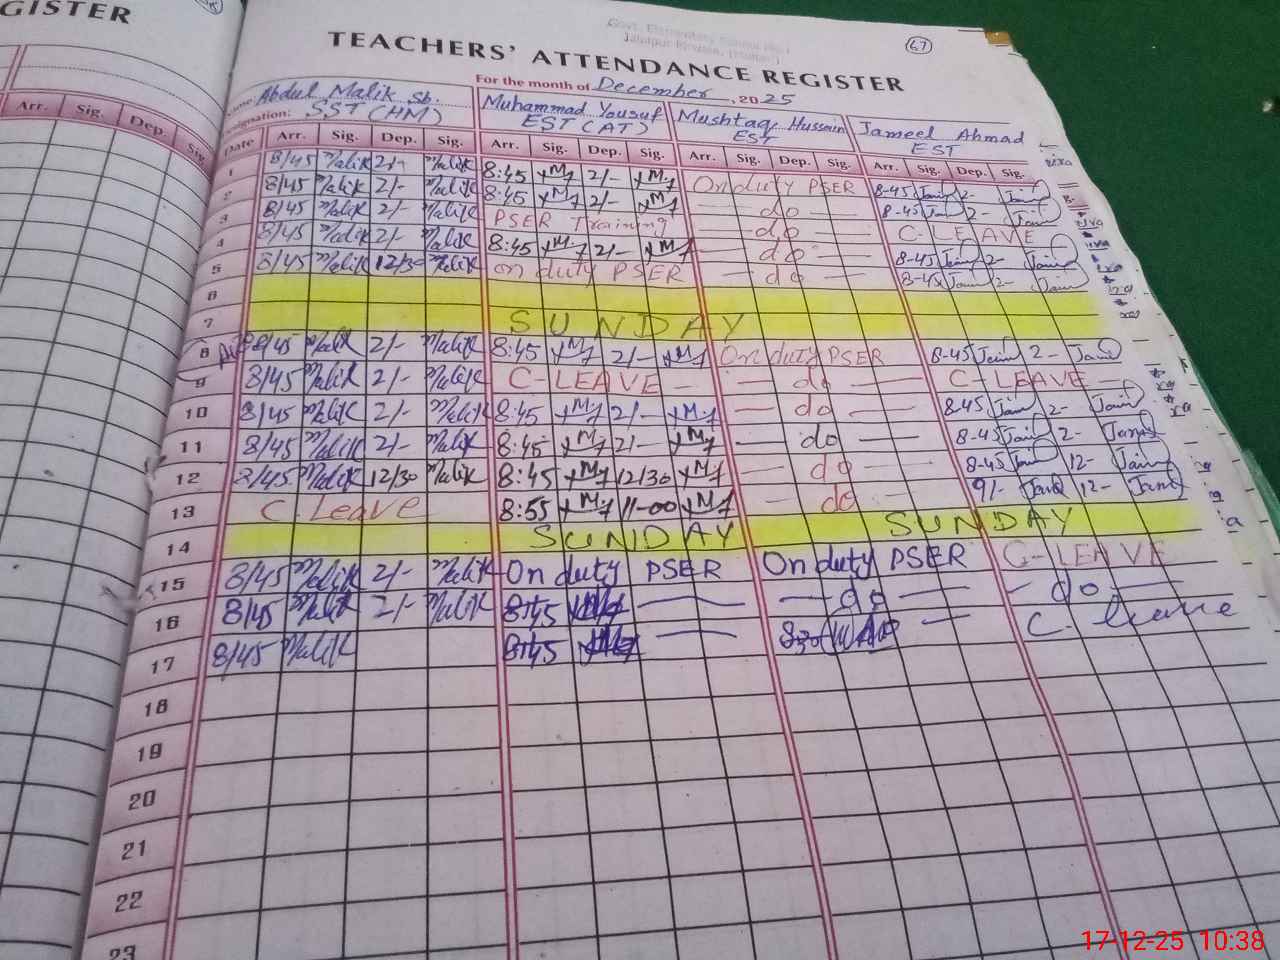 GISTER
Govt. Elementary School No.1
67
TEACHERS' ATTENDANCE REGISTER
For the month of December, 2025
Name: Abdul Malik Sb. Muhammad Yousuf Mushtaq Hussain Jameel Ahmad
Designation: SST (HM) EST (AT) EST EST
Arr. Sig. Dep. Sig.
Date Arr. Sig. Dep. Sig. Arr. Sig. Dep. Sig. Arr. Sig. Dep. Sig. Arr. Sig. Dep. Sig.
1 8/45 Malik 2/- Malik 8:45 2/- On duty PSER 8-45 Jam 2- Jam
2 8/45 Malik 2/- Malik 8:45 2/- — do — 8-45 Jam 2- Jam
3 8/45 Malik 2/- Malik PSER Training — do — C-LEAVE
4 8/45 Malik 2/- Malik 8:45 2/- — do — 8-45 Jam 2- Jam
5 8/45 Malik 12/30 Malik on duty PSER — do — 8-45 Jam 2- Jam
6
7 SUNDAY
8 8/45 Malik 2/- Malik 8:45 2/- On duty PSER 8-45 Jam 2- Jam
9 8/45 Malik 2/- Malik C-LEAVE — — do — C-LEAVE —
10 8/45 Malik 2/- Malik 8:45 2/- — do — 8-45 Jam 2- Jam
11 8/45 Malik 2/- Malik 8:45 2/- — do 8-45 Jam 2- Jam
12 8/45 Malik 12/30 Malik 8:45 12/30 — do — 8-45 Jam 12- Jam
13 C. Leave 8:55 11-00 — do — 9/- Jam 12- Jam
14 SUNDAY SUNDAY
15 8/45 Malik 2/- Malik On duty PSER On duty PSER C-LEAVE
16 8/45 Malik 2/- Malik 8:45 — do — — do —
17 8/45 Malik 8:45 C- leave
18
19
20
21
22
23
17-12-25 10:38